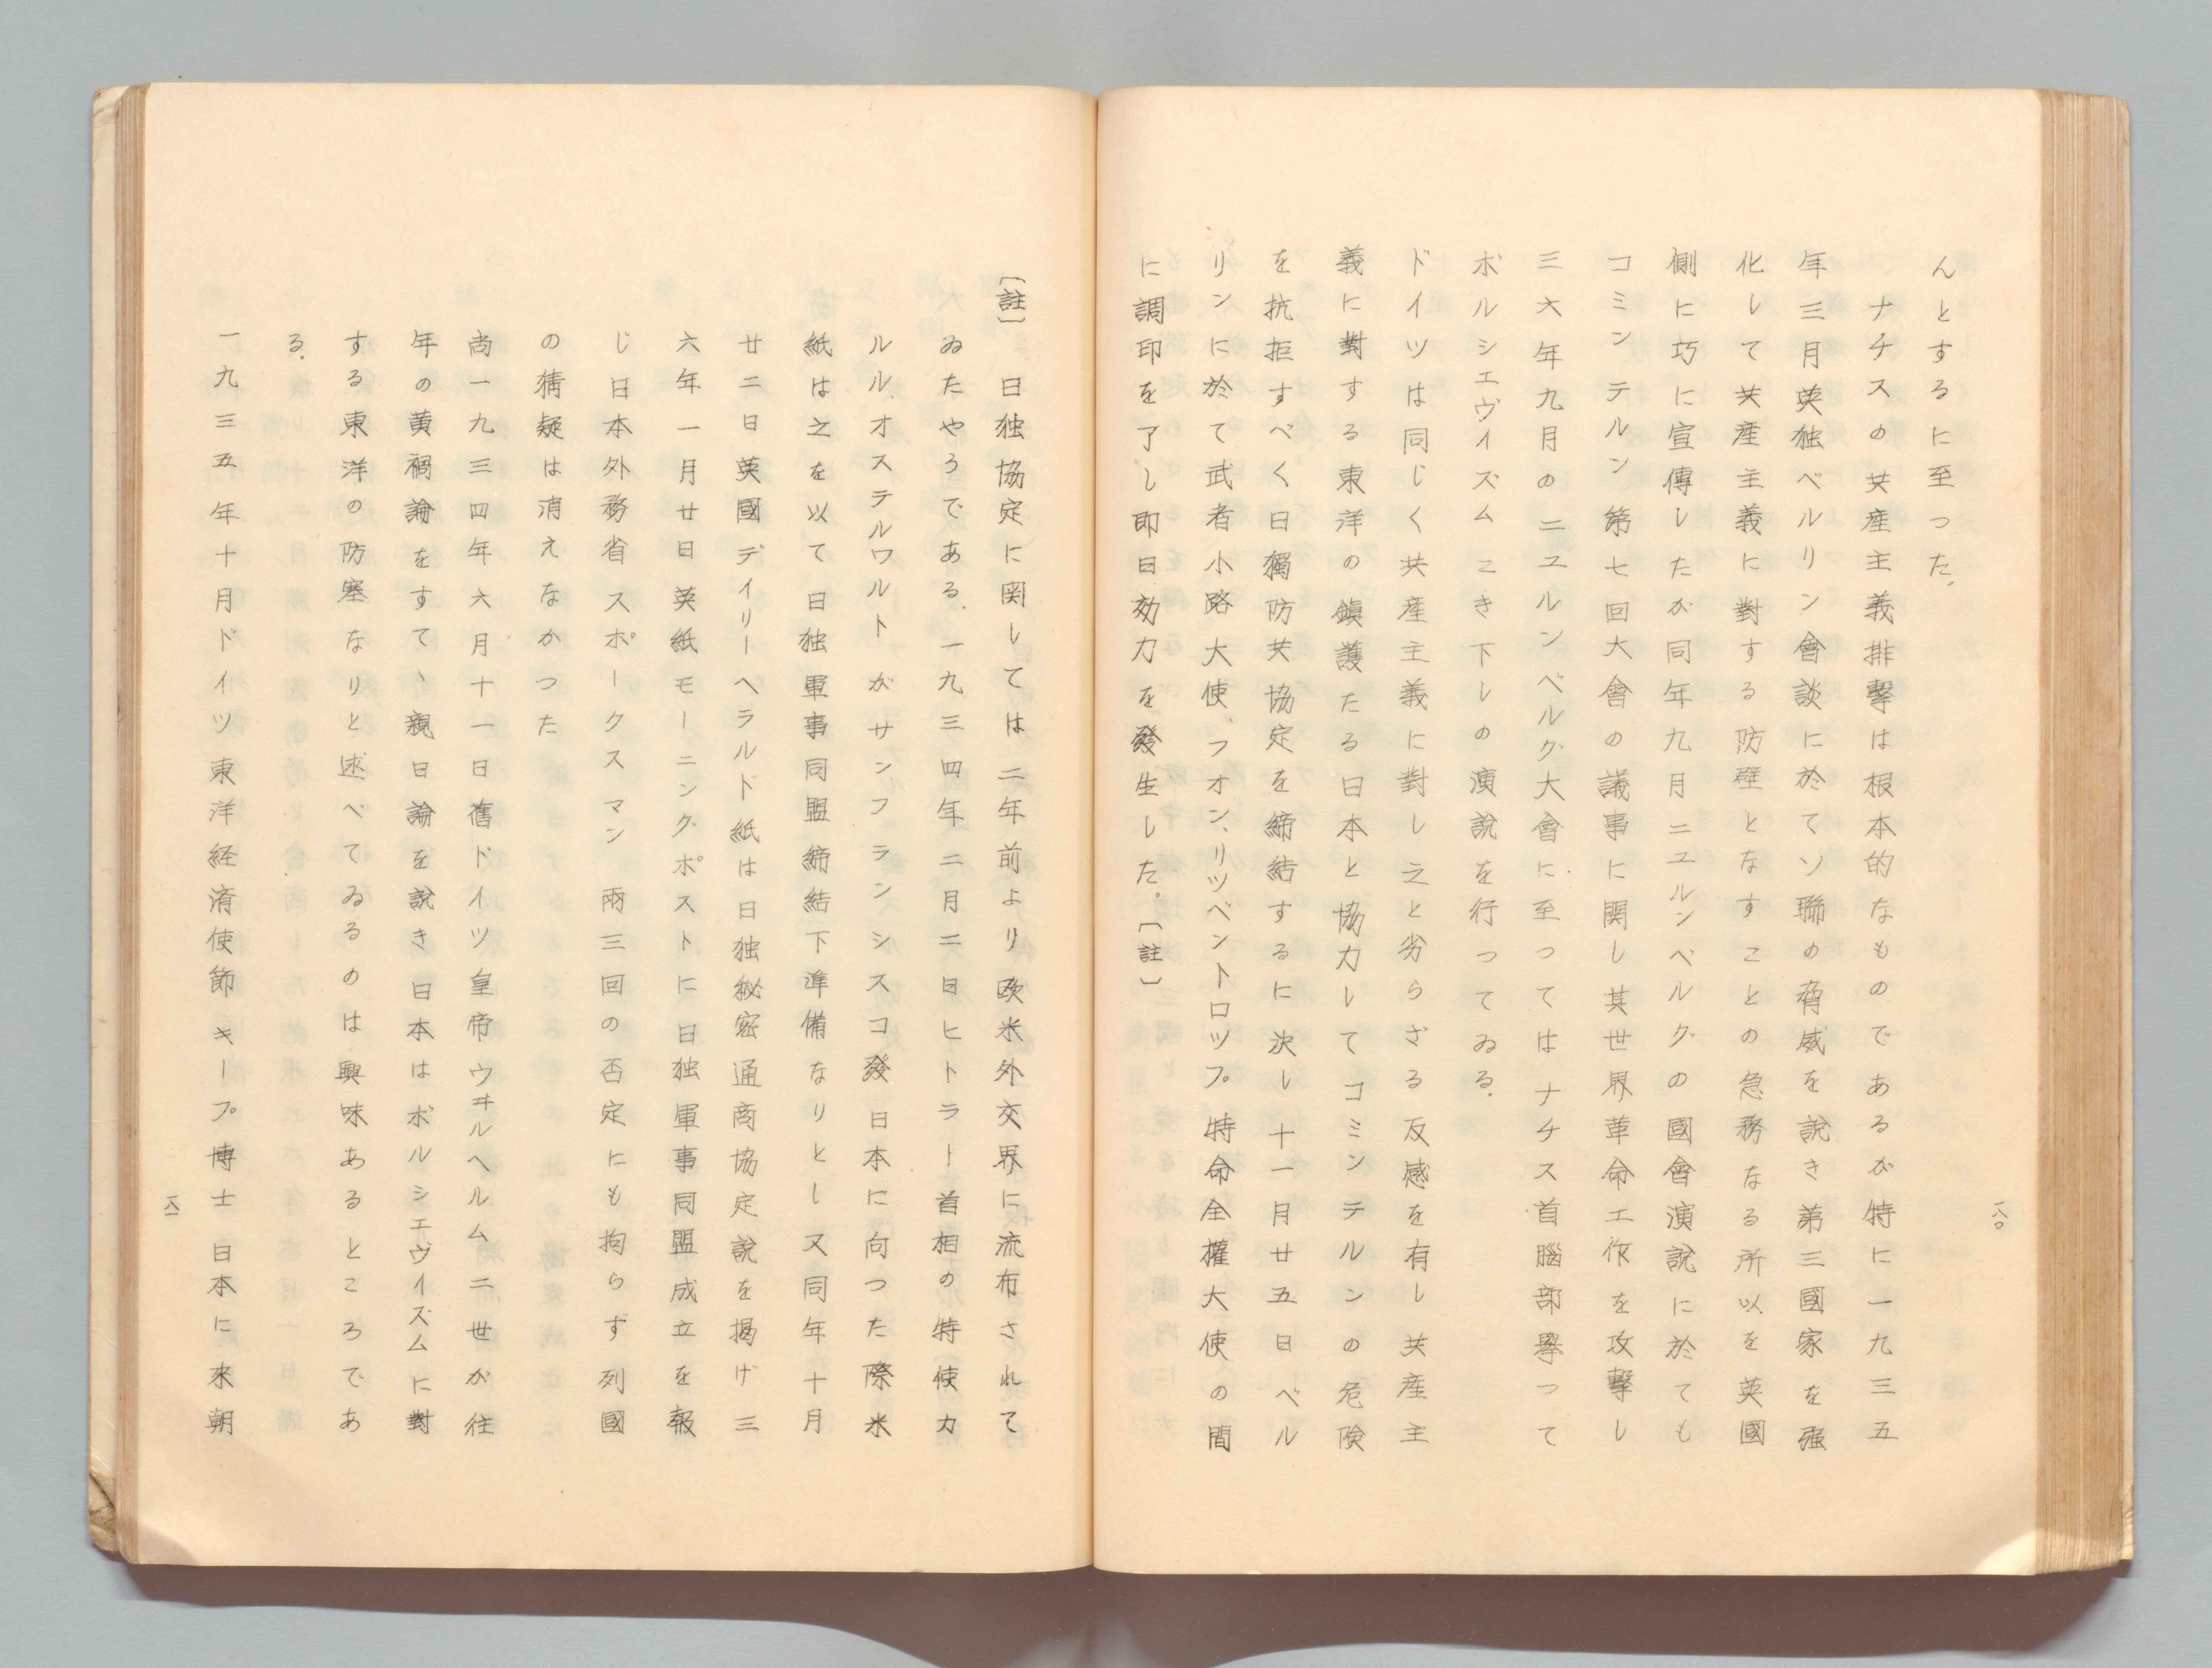 んとするに至つた。
ナチスの共産主義排撃は根本的なものであるが特に一九三五
年三月英独ベルリン會談に於てソ聯の脅威を説き第三國家を強
化して共産主義に對する防壁となすことの急務なる所以を英國
側に巧に宣傳したが同年九月ニユルンベルグの國會演説に於ても
コミンテルン第七回大會の議事に関し其世界革命工作を攻撃し
三六年九月のニユルンベルグ大會に至つてはナチス首腦部擧つて
ボルシエヴイズムこき下しの演説を行つてゐる.
ドイツは同じく共産主義に對し之と劣らざる反感を有し共産主
義に對する東洋の鎭護たる日本と協力してコミンテルンの危険
を抗拒すべく日獨防共協定を締結するに決し十一月廿五日ベル
リンに於て武者小路大使、フオン、リツベントロツプ特命全權大使の間
に調印を了し即日効力を發生した。〔註〕
一八〇
〔註〕 日独協定に関しては二年前より欧米外交界に流布されて
ゐたやうである.一九三四年二月二日ヒトラー首相の特使カ
ルル.オステルワルトがサンフランシスコ發日本に向つた際米
紙は之を以て日独軍事同盟締結下準備なりとし又同年十月
廿二日英國デイリーヘラルド紙は日独秘密通商協定説を揚げ三
六年一月廿日英紙モーニングポストに日独軍事同盟成立を報
じ日本外務省スポークスマン 兩三回の否定にも拘らず列國
の猜疑は消えなかつた
尚一九三四年六月十一日舊ドイツ皇帝ウヰルヘルム二世が往
年の黄禍論をすて、親日論を説き日本はボルシエヴイズムに對
する東洋の防塞なりと述べてゐるのは興味あるところであ
る.
一九三五年十月ドイツ東洋経済使節キープ博士日本に来朝
一八一